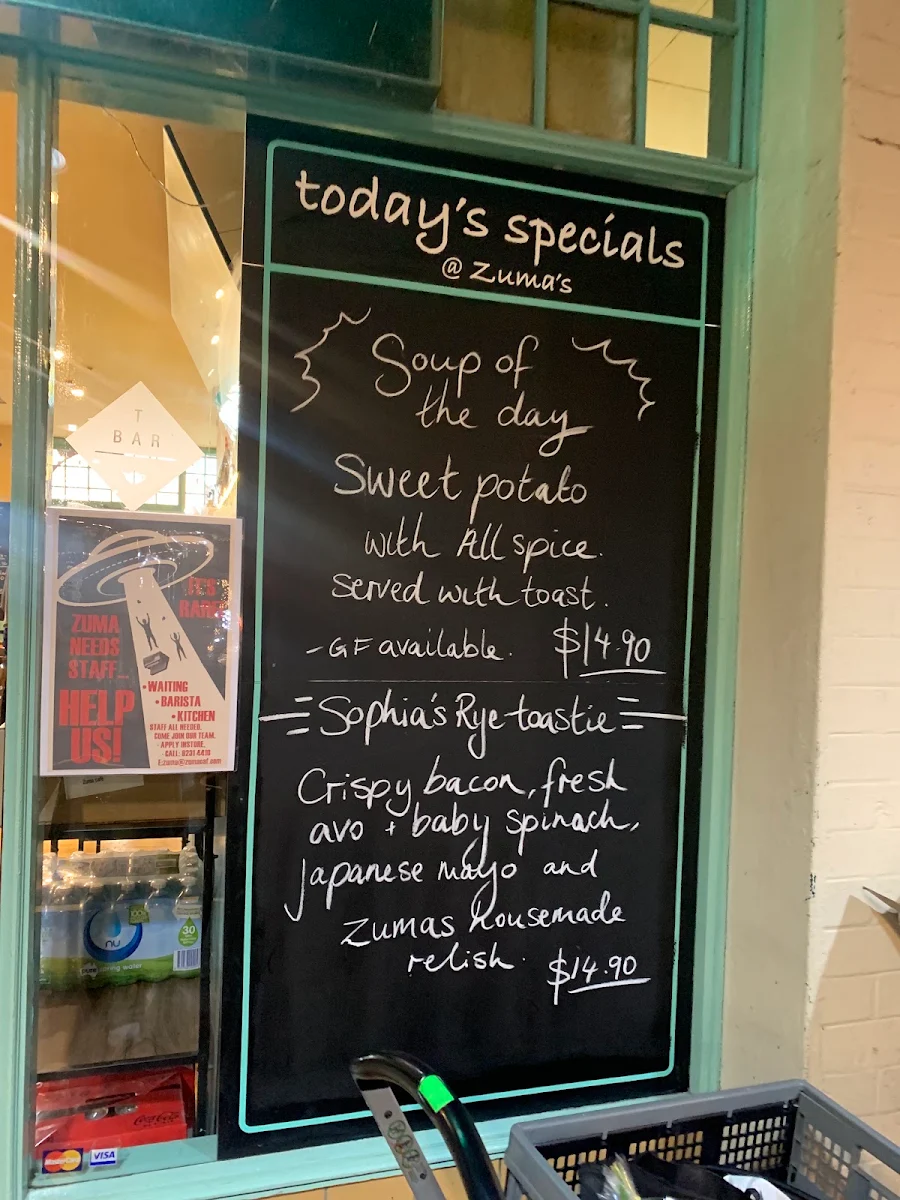 today's specials
@ Zuma's
Soup of
the day
Sweet potato
with All spice.
served with toast.
-GF available. $14.90
Sophia's Rye toastie
Crispy bacon, fresh
avo + baby spinach,
Japanese mayo and
Zumas housemade
relish. $14.90
T
BAR
IT'S
ZUMA
NEEDS
STAFF...
HELP
US!
• WAITING
• BARISTA
• KITCHEN
STAFF ALL NEEDED.
COME JOIN OUR TEAM.
- APPLY INSTORE,
- CALL: 8231 4410
nu
pure spring water
30
Coca-Cola
MasterCard
VISA